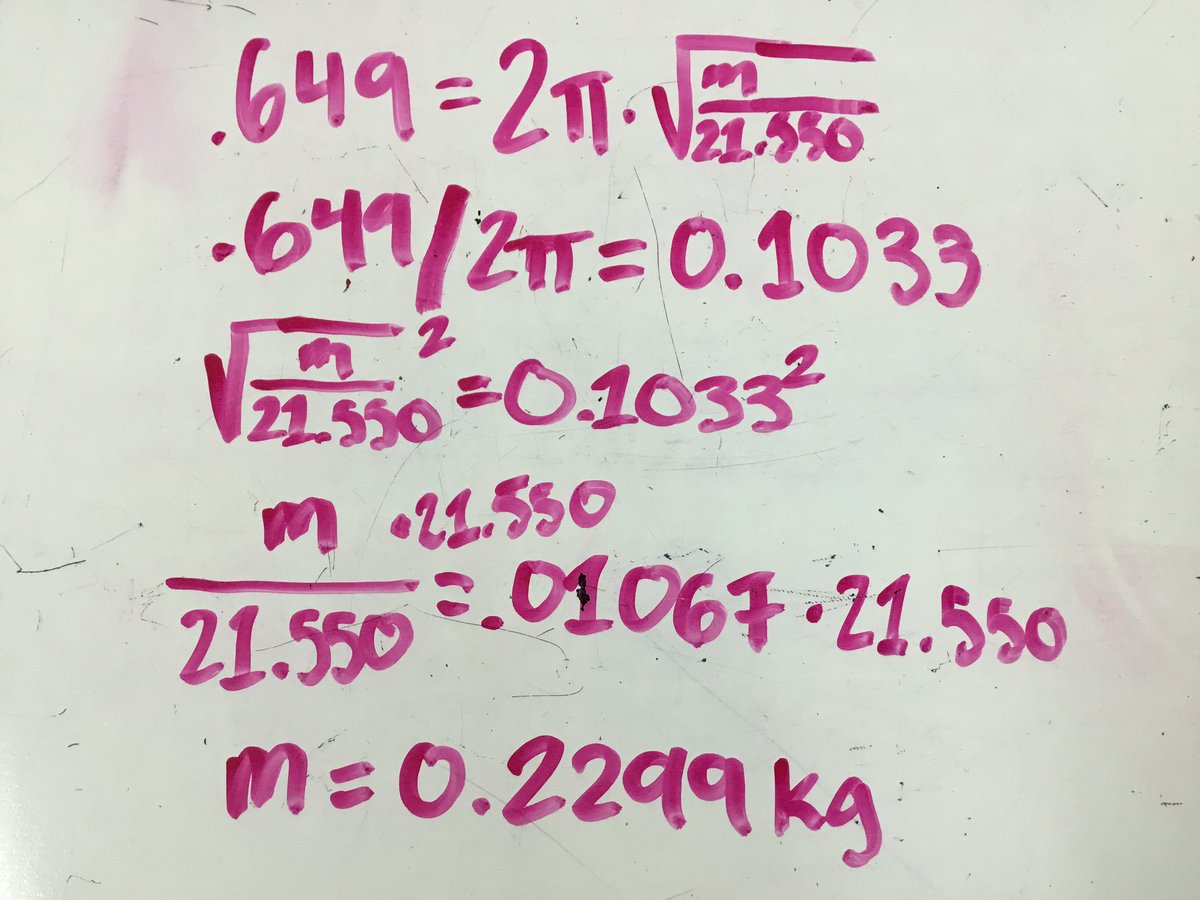 .649 = 2π · √(m/21.550)
.649/2π = 0.1033
√(m/21.550)² = 0.1033²
m/21.550 · 21.550 = .01067 · 21.550
m = 0.2299 kg